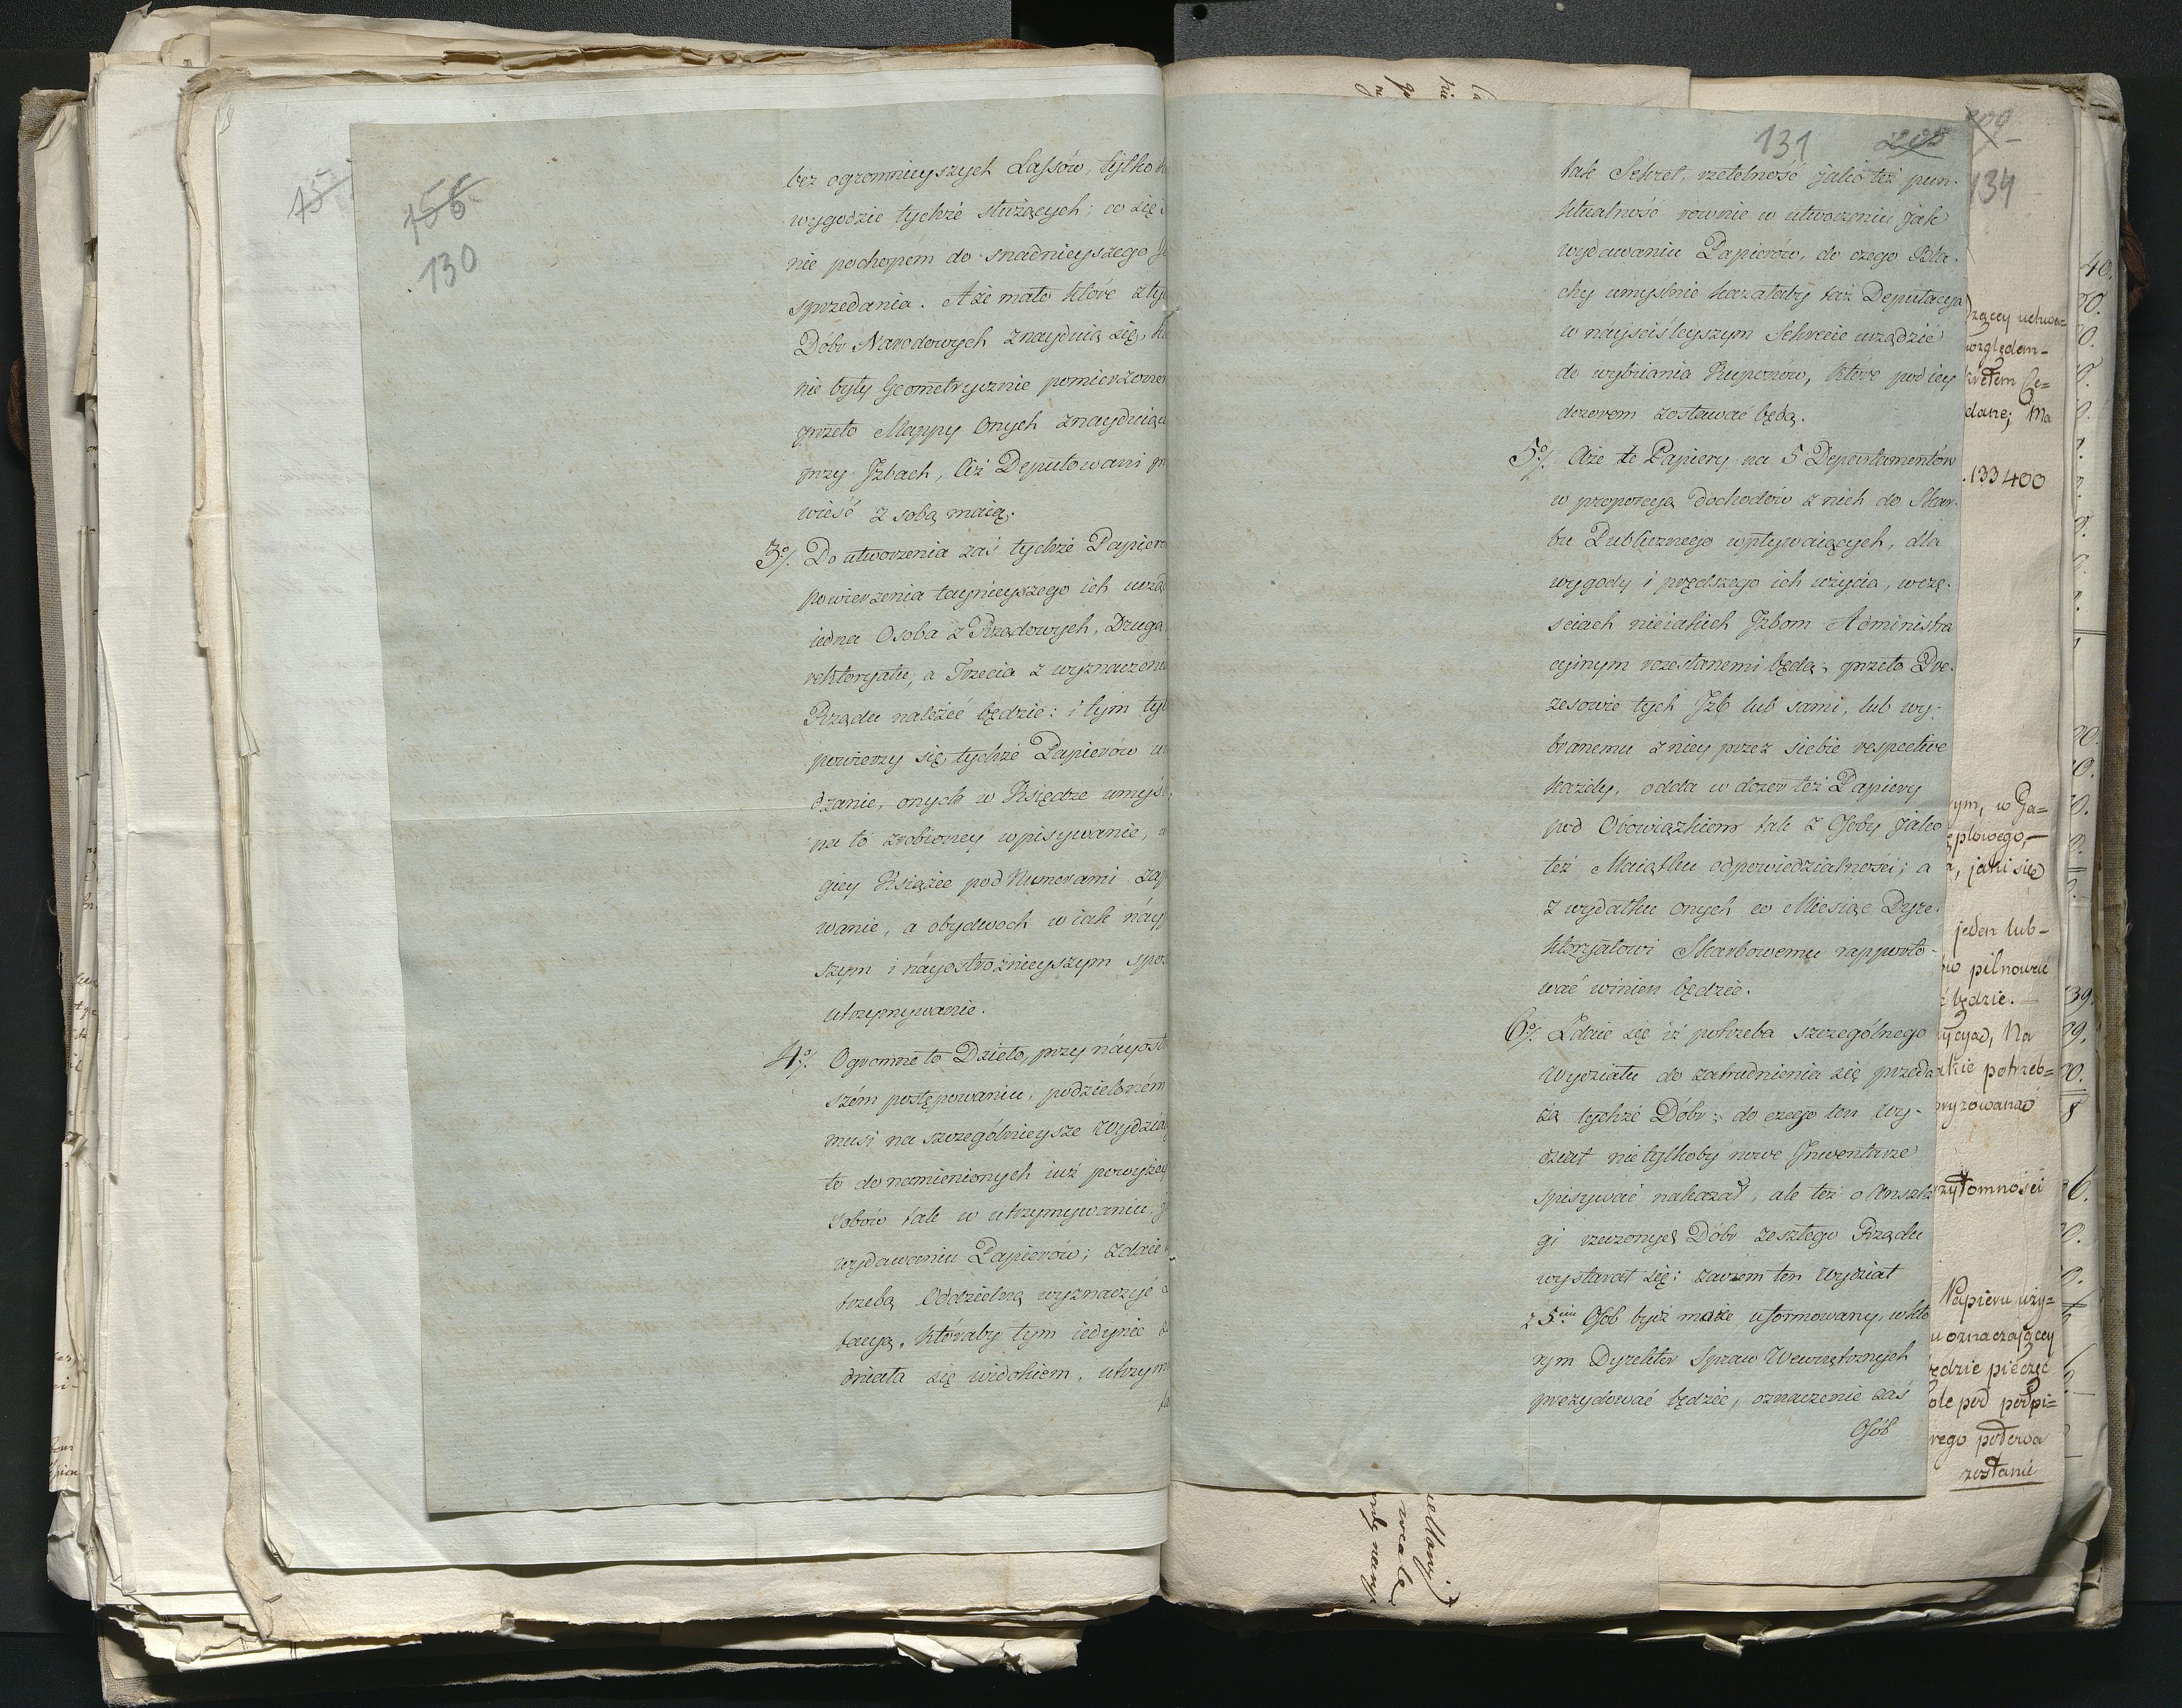 156
130
bez ogromnieyszych Lassów, tylko
wygodzie tychże służących; co się
nie pochopem do snadnieyszego
sprzedania. A że mało które z ty
Dóbr Narodowych znayduią się,
nie były Geometrycznie pomierzone
przeto Mappy Onych znayduiące
przy Jzbach, Ciż Deputowani
wieść z sobą maią.
3o/. Do utworzenia zaś tychże Papiero
powierzenia taynieyszego ich urzą
iedna Osoba z Rządowych, Druga
rektoryatu, a Trzecia z wyznaczenia
Rządu należeć będzie: i tym tyl
powierzy się tychże Papierów u
dzanie, onych w Księdze umyśl
na to zrobioney wpisywanie,
giey Księdze pod Numerami zap
wanie, a obydwoch w iak náy
szym i náyostrożnieyszym spos
utrzymywanie.
4o/. Ogromne to Dzieło, przy náyost
szém postępowaniu, podzieloném
musi na szczególnieysze Wydzia
to do namienionych iuż powyżey
sobów tak w utrzymywaniu,
wydawaniu Papierów; zdaie
trzebą Oddzielną wyznaczyć
tacyą, któraby tym iedynie
dniała się widokiem, utrzym
131
205
209
134
tak Sekret, rzetelność jako też pun-
ktualność rownie w utworzeniu jak
wydawaniu Papierów, do czego Bla-
chy umyślnie kazałaby taż Deputacya
w náyściśleyszym Sekrecie urządzić
do wybiiania Kuponów, które pod iey
dozorem zostawać będą.
5o/. Aże te Papiery na 5 Departamentów
w proporcyą Dochodów z nich do Skar-
bu Publicznego wpływaiących, dla
wygody i prędszego ich użycia, w czę-
ściach nieiakich Jzbom Administra
cyinym rozesłanemi będą; przeto Pre-
zesowie tych Jzb lub sami, lub wy-
branemu z niey przez siebie respective
każdy, odda w dozor też Papiery
pod Obowiązkiem tak z Osoby jako
też Maiątku odpowiedzialności; a
z wydatku onych co Miesiąc Dyre-
ktoryatowi Skarbowemu rapporto-
wać winien będzie.
6o/. Zdaie się iż potrzeba szczególnego
Wydziału do zatrudnienia się przeda
żą tychże Dóbr; do czego ten Wy-
dział nietylkoby nowe Jnwentarze
spisywać nakazał, ale też o Anszla
gi rzeczonych Dóbr zeszłego Rządu
wystarał się: zaczem ten Wydział
z 5ciu Osob być może uformowany, w któ
rym Dyrektor Spraw Wewnętrznych
prezydować będzie, oznaczenie zaś
Osób
względem-
dane; Ma
133400
ym, w Ga=
jeden lub-
pilnować
będzie.
potrzeb=
Papieru uży=
oznaczaiącey
będzie pieczęć
pod podpi=
zostanie